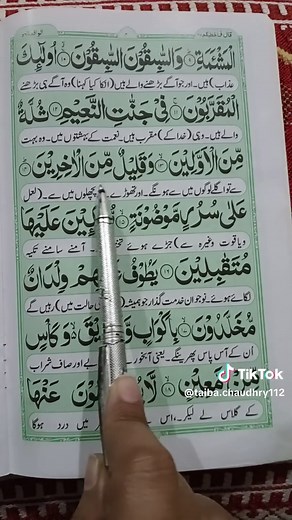 قال فما خطبکم ٢٧
الْمَشْـَٔمَةِ ۞ وَالسّٰبِقُوْنَ السّٰبِقُوْنَ ۞ اُولٰٓئِكَ
عذاب) ہیں۔ اور جو آگے بڑھنے والے ہیں (انکا کیا کہنا) وہ آگے ہی بڑھنے
الْمُقَرَّبُوْنَ ۞ فِيْ جَنّٰتِ النَّعِيْمِ ۞ ثُلَّةٌ
والے ہیں۔ وہی (خدا کے) مقرب ہیں۔ نعمت کے بہشتوں میں۔ وہ بہت
مِّنَ الْاَوَّلِيْنَ ۞ وَقَلِيْلٌ مِّنَ الْاٰخِرِيْنَ ۞
سے تو اگلے لوگوں میں سے ہونگے۔ اور تھوڑے پچھلوں میں سے۔ (لعل
عَلٰى سُرُرٍ مَّوْضُوْنَةٍ ۞ عَلَيْهَا
و یاقوت وغیرہ سے) جڑے ہوئے آمنے سامنے تکیہ
مُتَقٰبِلِيْنَ ۞ يَطُوْفُ وِلْدَانٌ
لگائے ہوئے۔ نوجوان خدمت گذار جو ہمیشہ حالت میں) رہیں گے
مُّخَلَّدُوْنَ ۞ بِاَكْوَابٍ وَكَاْسٍ
ان کے آس پاس پھرینگے۔ یعنی آبخورے اور صاف شراب
مِّنْ مَّعِيْنٍ ۞ لَا عَنْهَا
کے گلاس لے لیکر۔ اس میں درد ہوگا
TikTok
@taiba.chaudhry112